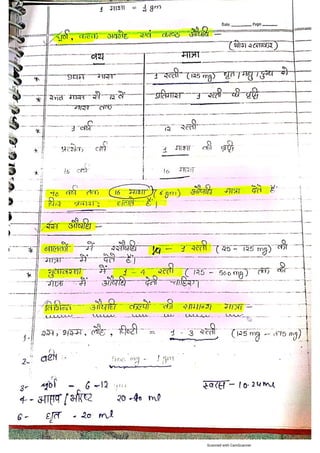 1 माशा = 1 gm
Date Page
चूर्ण, कल्क अवलेह एवं कल्प औषधि
वय मात्रा
* प्रथम मास 1 रत्ती (125 mg) घृत / मधु / दुग्ध से
* मास से 12 वें प्रतिमास 1 रत्ती की वृद्धि
मास तक
* 1 वर्ष 12 रत्ती
* प्रत्येक वर्ष 1 माशा की वृद्धि
* 16 वर्ष 16 माशा
वर्ष तक (16 माशा) औषधि मात्रा देते है
रस औषधि -
* बालकों में रसौषधि - 1 रत्ती (25 - 125 mg) की
मात्रा में देते है।
* युवावस्था में 1 - 4 रत्ती (125 - 500 mg) तक की
मात्रा में औषधि देनी चाहिए।
विभिन्न औषधि कल्पों की सामान्य मात्रा -
1- रस, भस्म, लौह, पिष्टी = 1 - 3 रत्ती (125 mg - 375 mg)
2- वटी 500 mg - 1 gm
3- चूर्ण - 6 - 12 gm स्वरस - 10-24 ml
4- आसव / अरिष्ट 20 - 40 ml
घृत - 20 ml
Scanned with CamScanner